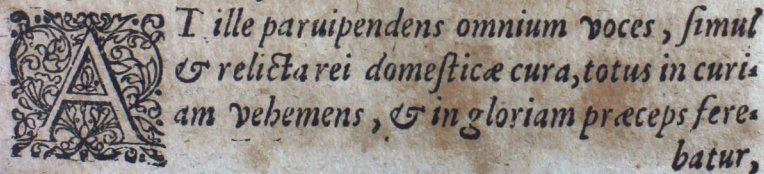 AT ille paruipendens omnium voces, ſimul
& relicta rei domeſticæ cura, totus in curi-
am vehemens, & in gloriam præceps fere-
batur,